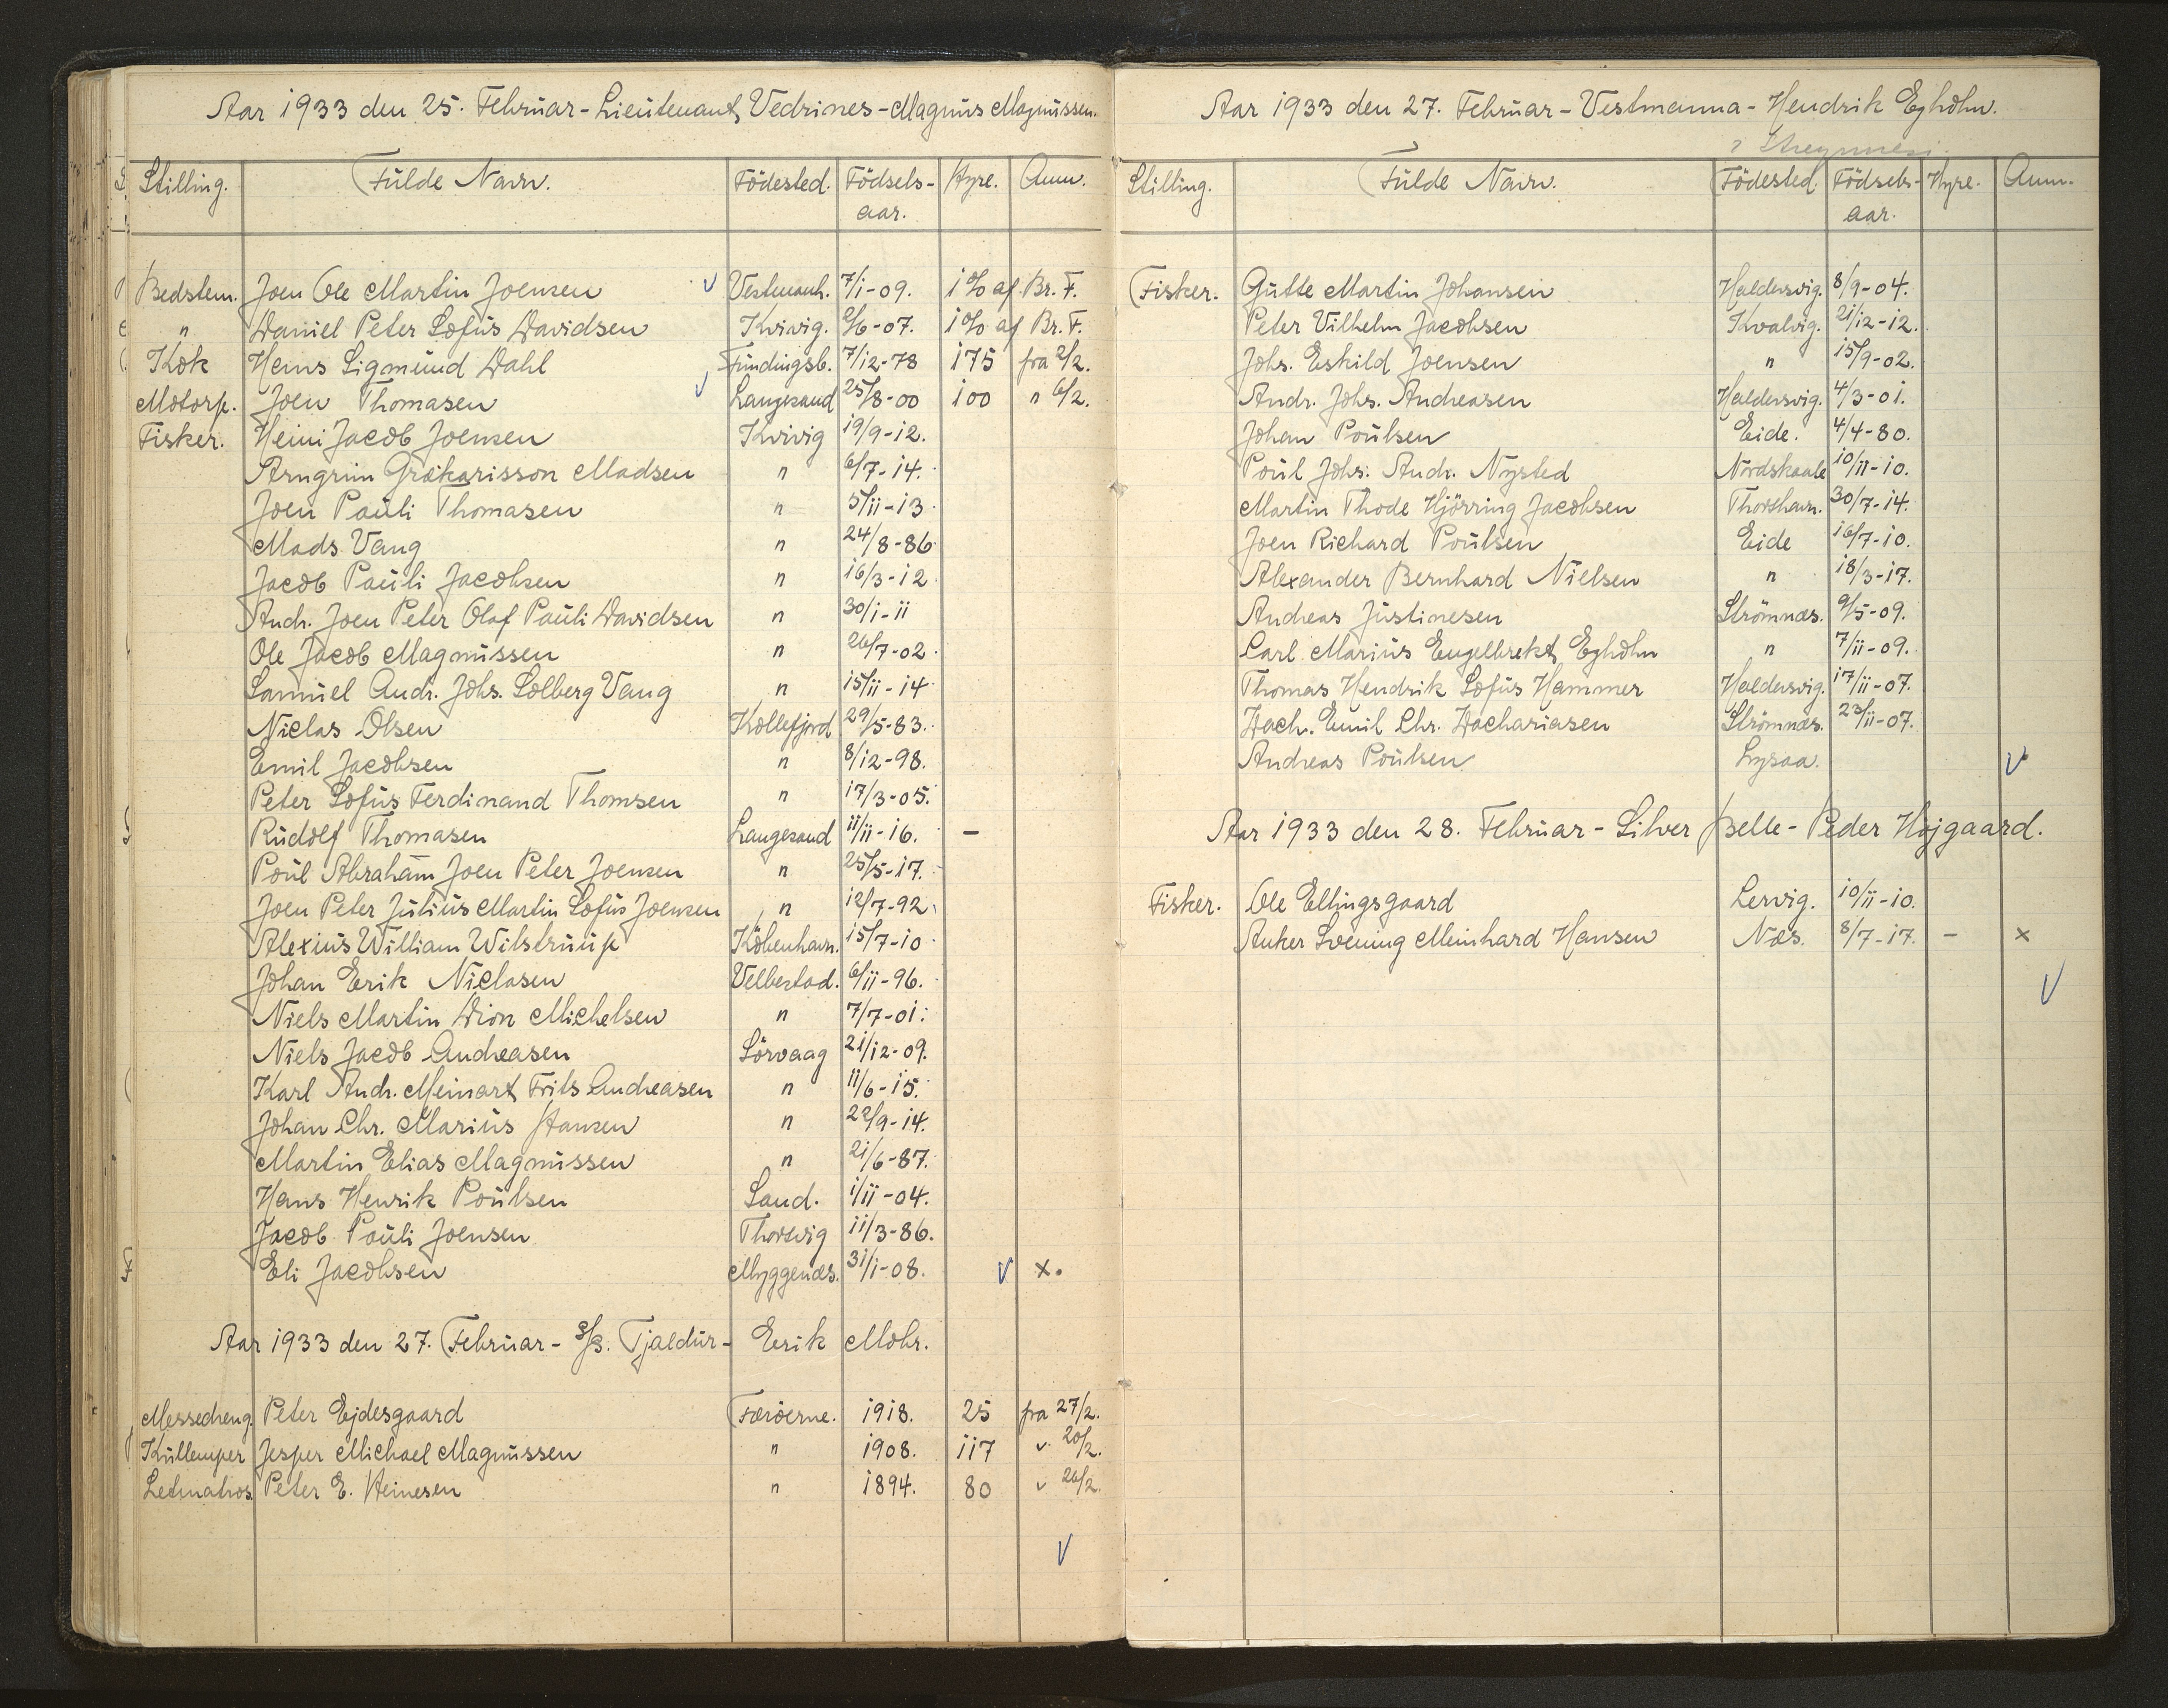 Aar 1933 den 25. Februar - Lieutenant Vedrines - Magnus Magnussen.
Stilling. Fulde Navn. Födested. Födsels-aar. Hyre. Anm.
Bedstem. Joen Ole Martin Joensen Vestmanh. 7/1-09. 1% af Br. F.
" Daniel Peter Sofus Davidsen Kvivig. 2/6-07. 1% af Br. F.
Kok Hans Sigmund Dahl Fundingsb. 7/12-78 175 fra 2/2.
Motorp. Joen Thomasen Langesand 25/8-00 100 " 6/2.
Fisker. Heini Jacob Joensen Kvivig 19/9-12.
Arngrim Grækarisson Madsen " 6/7-14.
Joen Pauli Thomasen " 5/11-13
Mads Vang " 24/8-86
Jacob Pauli Jacobsen " 16/3-12
Andr. Joen Peter Olaf Pauli Davidsen " 30/1-11
Ole Jacob Magnussen " 26/7-02
Samuel Andr. Johs. Solberg Vang " 15/11-14
Niclas Olsen Kollefjord 29/5-83.
Emil Jacobsen " 8/12-98.
Peter Sofus Ferdinand Thomsen " 17/3-05.
Rudolf Thomasen Langesand 11/11-16. -
Poul Abraham Joen Peter Joensen " 25/5-17.
Joen Peter Julius Martin Sofus Joensen " 12/7-92
Alexius William Wilstrup Köbenhavn. 15/7-10
Johan Erik Niclasen Velbestad. 6/11-96.
Niels Martin Dion Michelsen " 7/7-01.
Niels Jacob Andreasen Sörvaag 21/12-09.
Karl Andr. Meinart Frits Andreasen " 11/6-15.
Johan Chr. Marius Hansen " 22/9-14.
Martin Elias Magnussen " 21/6-87.
Hans Henrik Poulsen Sand. 1/11-04.
Jacob Pauli Joensen Thorsvig 11/3-86.
Eli Jacobsen Myggenæs. 31/1-08. x.
Aar 1933 den 27. Februar - S/S. Tjaldur - Erik Mohr.
Messedreng. Peter Ejdesgaard Færöerne. 1918. 25 fra 27/2.
Kullemper Jesper Michael Magnussen " 1908. 117 " 20/2.
Letmatros. Peter E. Heinesen " 1894. 80 " 26/2.
Aar 1933 den 27. Februar - Vestmanna - Hendrik Egholm.
Stilling. Fulde Navn. Födested. Födsels-aar. Hyre. Anm.
Fisker. Gutte Martin Johansen Haldersvig. 8/9-04.
Peter Vilhelm Jacobsen Kvalvig. 21/12-12.
Johs. Eskild Joensen " 15/9-02.
Andr. Johs. Andreasen Haldersvig. 4/3-01.
Johan Poulsen Eide. 4/4-80.
Poul Johs. Andr. Nysted Nordskaale 10/11-10.
Martin Thode Hjörring Jacobsen Thorshavn. 30/7-14.
Joen Richard Poulsen Eide 16/7-10.
Alexander Bernhard Nielsen " 18/3-17.
Andreas Justinesen Strömnæs. 9/5-09.
Carl Marius Engelbrekt Egholm " 7/11-09.
Thomas Hendrik Sofus Hammer Haldersvig. 17/11-07.
Zach. Emil Chr. Zachariasen Strömnæs. 23/11-07.
Andreas Poulsen
Aar 1933 den 28. Februar - Silver Belle - Peder Höjgaard.
Fisker. Ole Ellingsgaard Lervig. 10/11-10.
Anker Svenning Meinhard Hansen Næs. 8/7-17. - x